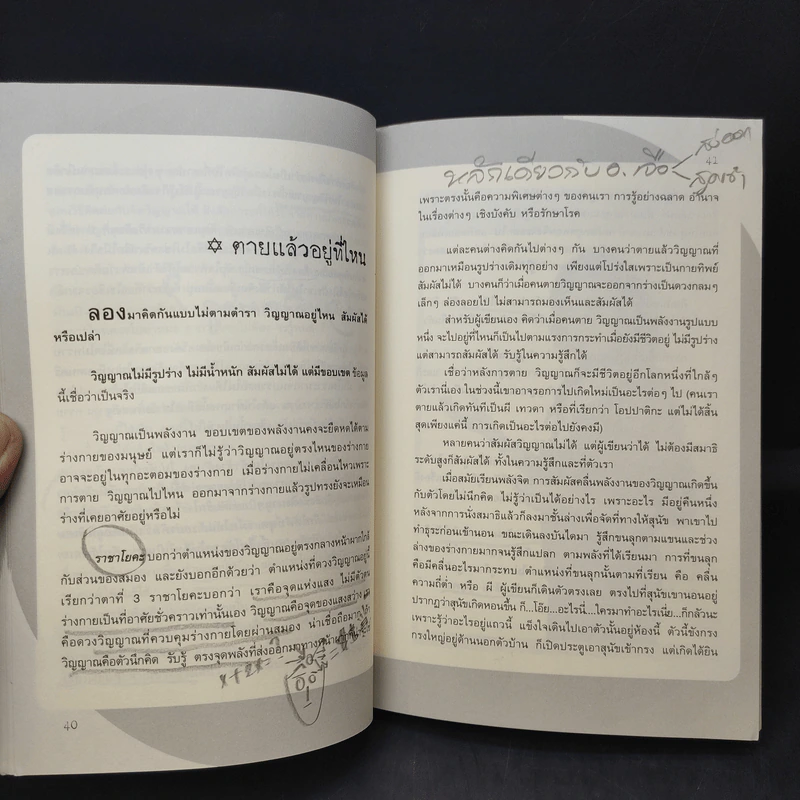 ✡ ตายแล้วอยู่ที่ไหน
ลองมาคิดกันแบบไม่ตามตำรา วิญญาณอยู่ไหน สัมผัสได้
หรือเปล่า
วิญญาณไม่มีรูปร่าง ไม่มีน้ำหนัก สัมผัสไม่ได้ แต่มีขอบเขต ข้อมูล
นี้เชื่อว่าเป็นจริง
วิญญาณเป็นพลังงาน ขอบเขตของพลังงานคงจะยึดหดได้ตาม
ร่างกายของมนุษย์ แต่เราก็ไม่รู้ว่าวิญญาณอยู่ตรงไหนของร่างกาย
อาจจะอยู่ในทุกอะตอมของร่างกาย เมื่อร่างกายไม่เคลื่อนไหวเพราะ
การตาย วิญญาณไปไหน ออกมาจากร่างกายแล้วรูปทรงยังจะเหมือน
ร่างที่เคยอาศัยอยู่หรือไม่
ราชาโยคะบอกว่าตำแหน่งของวิญญาณอยู่ตรงกลางหน้าผากใกล้
กับส่วนของสมอง และยังบอกอีกด้วยว่า ตำแหน่งที่ดวงวิญญาณอยู่นี้
เรียกว่าตาที่ 3 ราชาโยคะบอกว่า เราคือจุดแห่งแสง ไม่มีตัวตน
ร่างกายเป็นที่อาศัยชั่วคราวเท่านั้นเอง วิญญาณคือจุดของแสงสว่าง
คือดวงวิญญาณที่ควบคุมร่างกายโดยผ่านสมอง น่าเชื่อถือมาก
วิญญาณคือตัวนึกคิด รับรู้ ตรงจุดพลังที่ส่งออกมาทางหน้า
40
41
หลักเดียวกับ อ. เจือ
ส่งออก
สูดเข้า
เพราะตรงนั้นคือความพิเศษต่างๆ ของคนเรา การรู้อย่างฉลาด อำนาจ
ในเรื่องต่างๆ เชิงบังคับ หรือรักษาโรค
แต่ละคนต่างคิดกันไปต่างๆ กัน บางคนว่าตายแล้ววิญญาณที่
ออกมาเหมือนรูปร่างเดิมทุกอย่าง เพียงแต่โปร่งใสเพราะเป็นกายทิพย์
สัมผัสไม่ได้ บางคนก็ว่าเมื่อคนตายวิญญาณจะออกจากร่างเป็นดวงกลมๆ
เล็กๆ ล่องลอยไป ไม่สามารถมองเห็นและสัมผัสได้
สำหรับผู้เขียนเอง คิดว่าเมื่อคนตาย วิญญาณเป็นพลังงานรูปแบบ
หนึ่ง จะไปอยู่ที่ไหนก็เป็นไปตามแรงการกระทำเมื่อยังมีชีวิตอยู่ ไม่มีรูปร่าง
แต่สามารถสัมผัสได้ รับรู้ในความรู้สึกได้
เชื่อว่าหลังการตาย วิญญาณก็จะมีชีวิตอยู่อีกโลกหนึ่งที่ใกล้ๆ
ตัวเรานี่เอง ในช่วงนี้เขาอาจรอการไปเกิดใหม่เป็นอะไรต่อๆ ไป (คนเรา
ตายแล้วเกิดทันทีเป็นผี เทวดา หรือที่เรียกว่า โอปปาติกะ แต่ไม่ได้สิ้น
สุดเพียงแค่นี้ การเกิดเป็นอะไรต่อไปยังคงมี)
หลายคนว่าสัมผัสวิญญาณไม่ได้ แต่ผู้เขียนว่าได้ ไม่ต้องมีสมาธิ
ระดับสูงก็สัมผัสได้ ทั้งในความรู้สึกและที่ตัวเรา
เมื่อสมัยเรียนพลังจิต การสัมผัสคลื่นพลังงานของวิญญาณเกิดขึ้น
กับตัวโดยไม่นึกคิด ไม่รู้ว่าเป็นได้อย่างไร เพราะอะไร มีอยู่คืนหนึ่ง
หลังจากการนั่งสมาธิแล้วก็ลงมาชั้นล่างเพื่อจัดที่ทางให้สุนัข พาเขาไป
ทำธุระก่อนเข้านอน ขณะเดินลงบันไดมา รู้สึกขนลุกตามแขนและช่วง
ล่างของร่างกายมากจนรู้สึกแปลก ตามพลังที่ได้เรียนมา การที่ขนลุก
คือมีคลื่นอะไรมากระทบ ตำแหน่งที่ขนลุกนั้นตามที่เรียน คือ คลื่น
ความถี่ต่ำ หรือ ผี ผู้เขียนก็เดินตัวตรงเลย ตรงไปที่สุนัขเขานอนอยู่
ปรากฏว่าสุนัขเกิดหอนขึ้น ก็...โอ๊ย...อะไรนี่...ใครมาทำอะไรเนี่ย...ก็กลัวนะ
เพราะรู้ว่าอะไรอยู่แถวนี้ แข็งใจเดินไปเอาตัวนั้นอยู่ห้องนี้ ตัวนี้ขังกรง
กรงใหญ่อยู่ด้านนอกตัวบ้าน ก็เปิดประตูเอาสุนัขเข้ากรง แต่เกิดได้ยิน